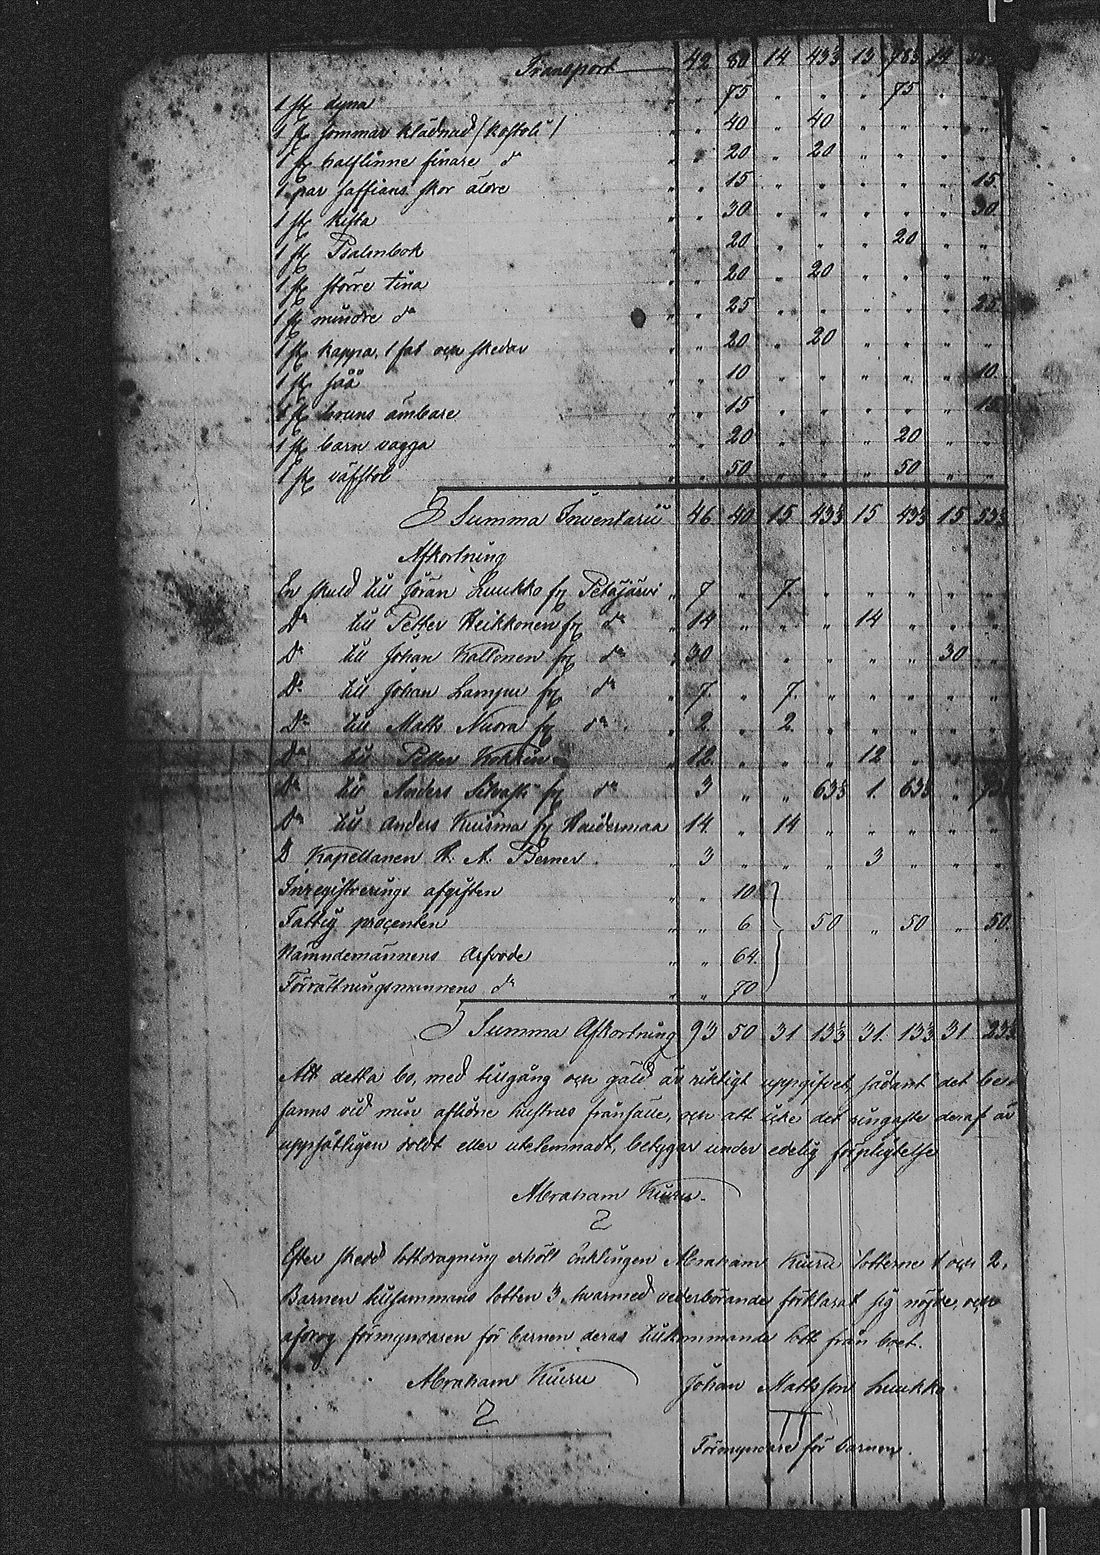 Transport 42 80 14 43⅓ 13 78⅓ 14
1 st dyna " " 75 " " " 75 " "
1 st sommar klädnad / kostoli / " " 40 " 40 " " " "
1 st halflinne finare do " " 20 " 20 " " " "
1 par saffians skor äldre " " 15 " " " " " 15
1 st kista " " 30 " " " " " 30
1 st Psalmbok " " 20 " " " 20 " "
1 st större tina " " 20 " 20 " " " "
1 st mindre do " " 25 " " " " " 25
1 st kappa, 1 fat och skedar " " 20 " 20 " " " "
1 st såå " " 10 " " " " " 10
1 st bruns ämbare " " 15 " " " " " 15
1 st barn vagga " " 20 " " " 20 " "
1 st väfstol " " 50 " " " 50 " "
Summa Inventarii 46 40 15 43⅓ 15 43⅓ 15 53⅓
Afkortning
En skuld till Jöran Luukko fr Petäjärvi " 7 " 7 " " " " "
Do till Petter Heikkonen fr do " 14 " " " 14 " " "
Do till Johan Kallonen fr do " 30 " " " " " 30 "
Do till Johan Lampu fr do " 7 " 7 " " " " "
Do till Matts Nuora fr do " 2 " 2 " " " " "
Do till Petter Kokkin " 12 " " " 12 " " "
Do till Anders fr do 3 " " 63⅓ 1 63⅓ "
Do till Anders Kuisma fr 14 " 14 " " " " "
D Kapellanen K. A. Berner " 3 " " " 3 " " "
Inregistrerings afgiften " " 10
Fattig procenten " " 6 50 " 50 " 50
Nämndemännens Arfvode " " 64
Förrättningsmannens do " " 70
Summa Afkortning 93 50 31 13⅓ 31 13⅓ 31 23⅓
Att detta bo, med tillgång och gäld är riktigt uppgifvet sådant det be
fanns vid min aflidne hustrus frånfälle, och att icke det ringaste deraf är
uppsåtligen doldt eller utelemnadt, betygar under edelig förpligtelse
Abraham Kiuru
2
Efter skedd lottdragning erhöll Enklingen Abraham Kiuru lotterne 1 och 2.
Barnen tillsammans lotten 3, hvarmed vederbörande förklarat sig nöjde, och
aftog förmyndaren för barnen deras tillkommande lott från boet.
Abraham Kiuru Johan Mattsson Luukko
2
Förmyndare för barnen.